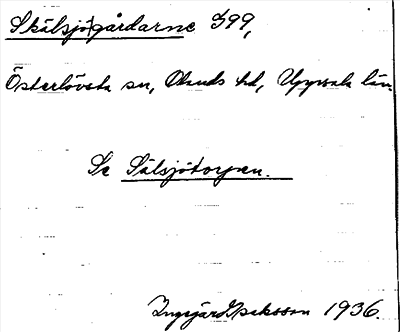 Skälsjögårdarne 399,
Österlövsta sn, Olands hd, Uppsala län.
Se Sälsjötorpen.
Ingegärd Isaksson 1936.